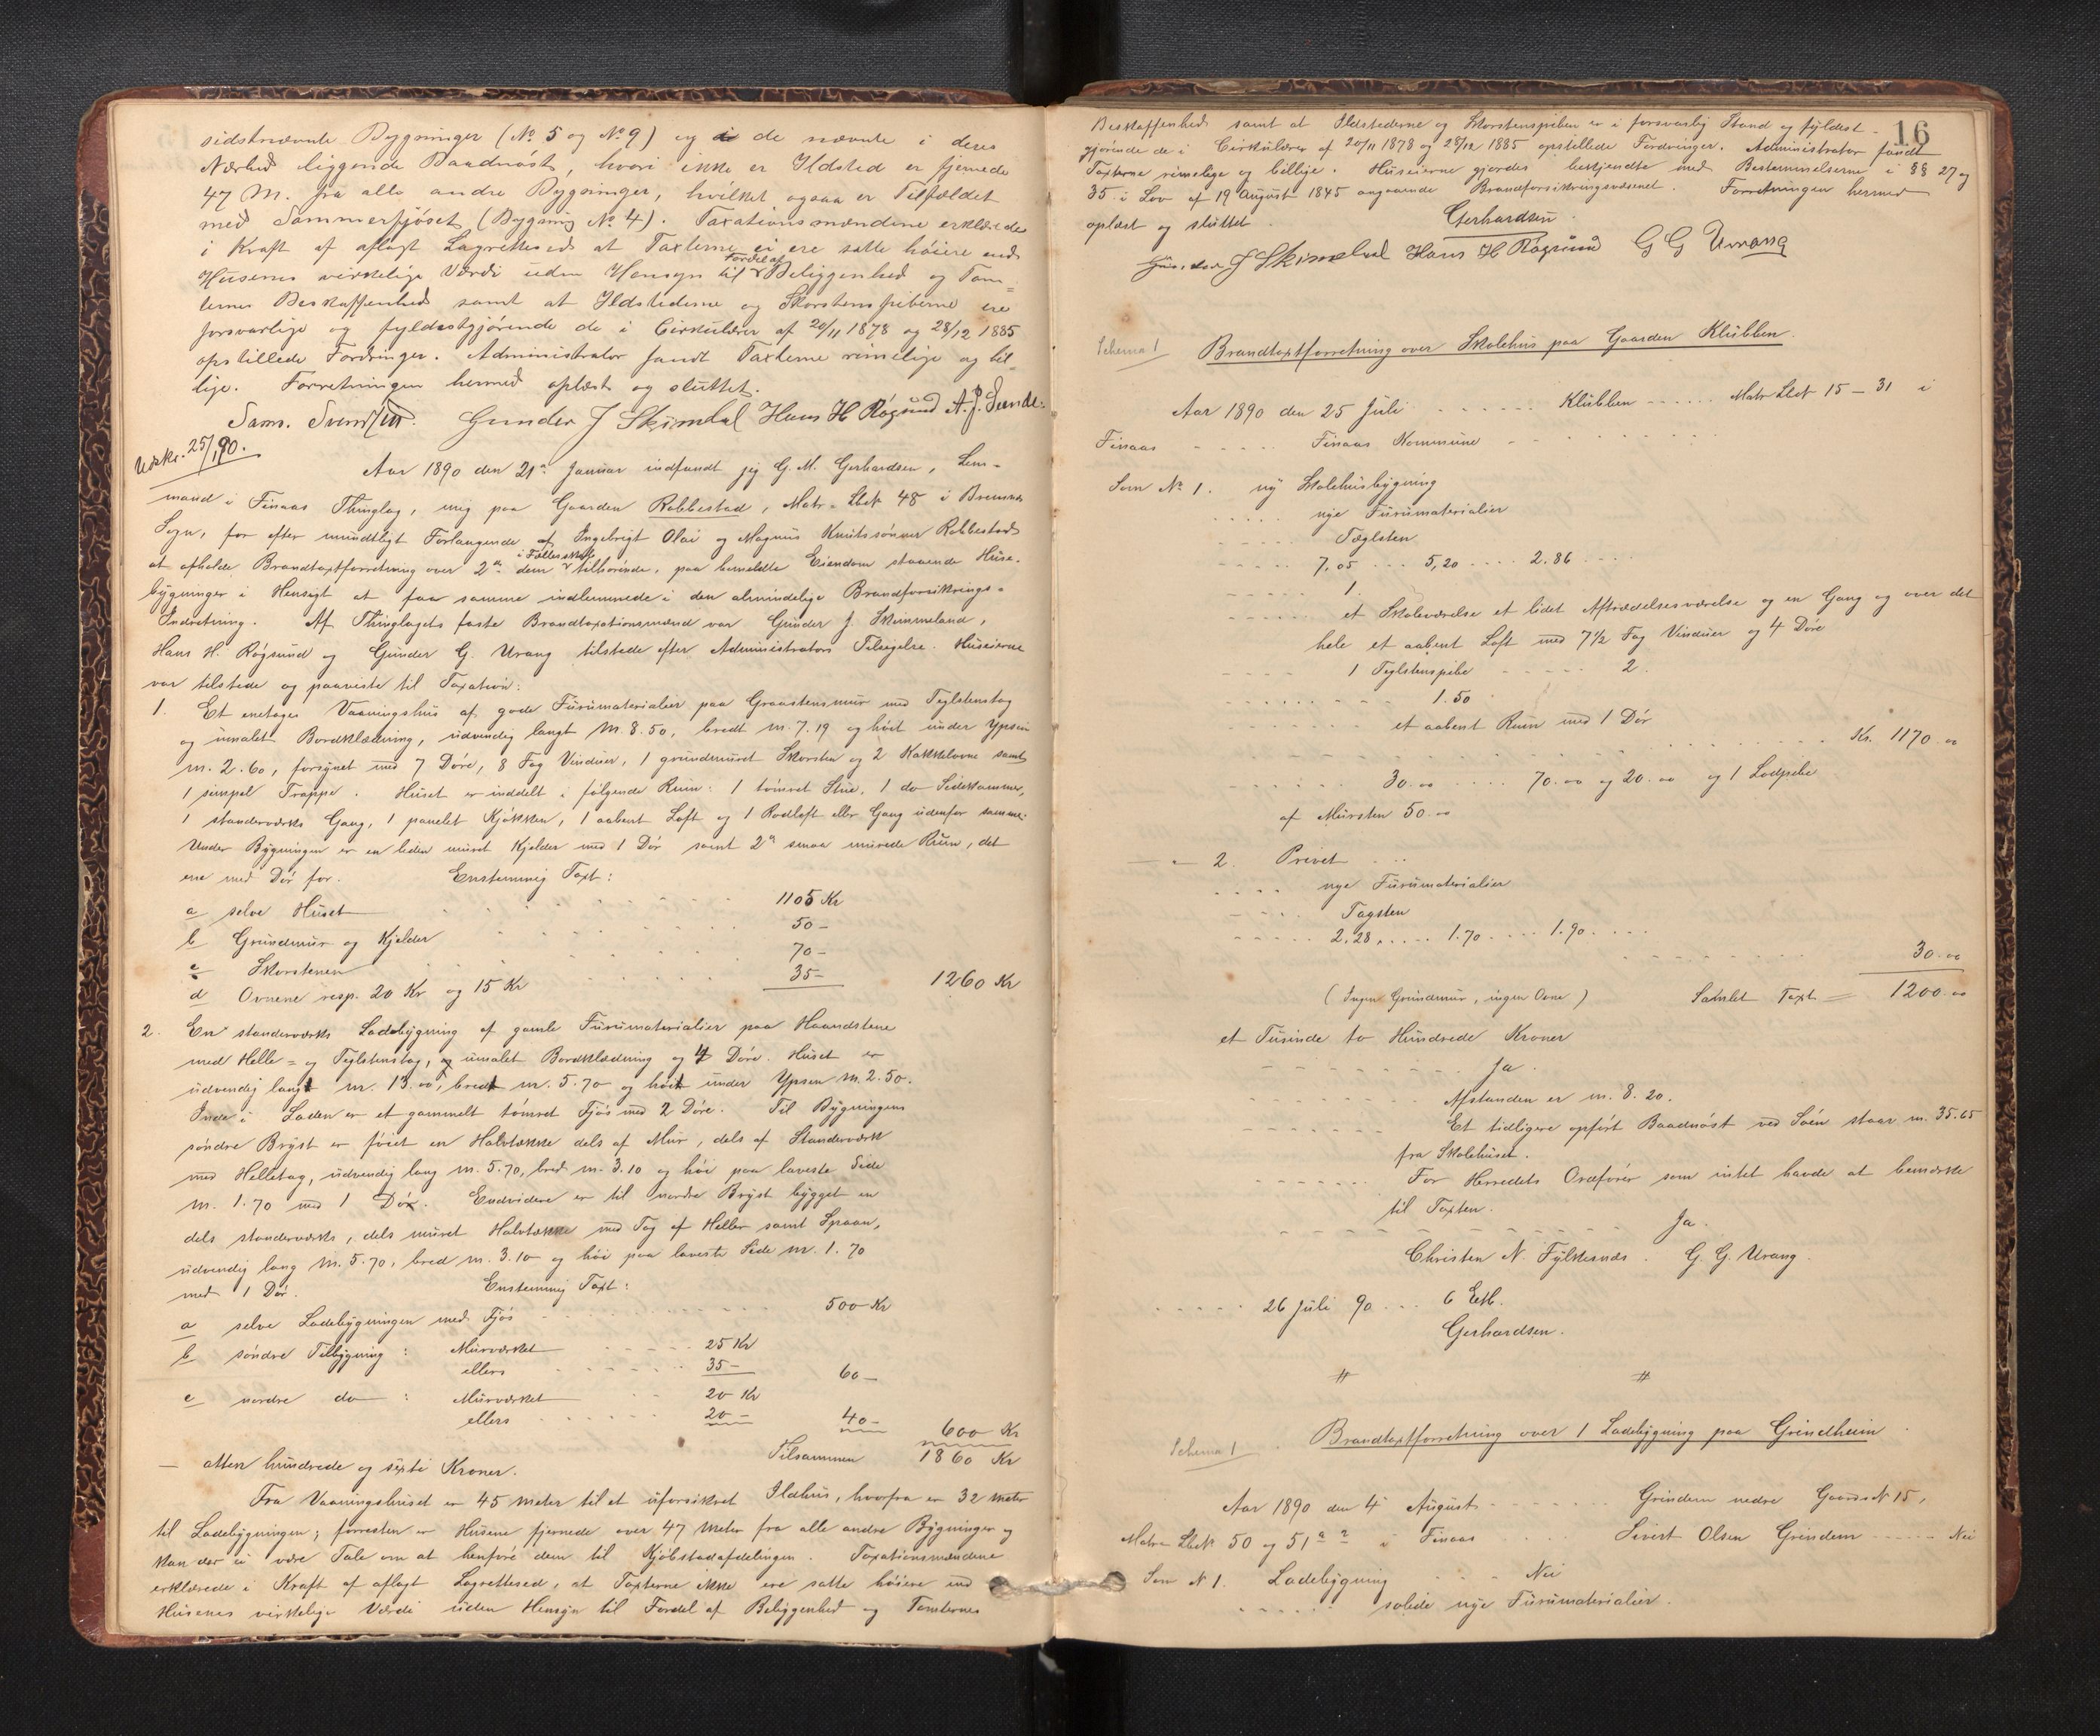 sidstnævnte Bygninger (№ 5 og № 9) og de nævnte i deres
Nærhed liggende Baadnøst, hvori ikke er Ildsted er fjernede
47 M. fra alle andre Bygninger, hvilket ogsaa er Tilfældet
med Sommerfjøset (Bygning № 4). Taxationsmændene erklærede
i Kraft af aflagt Lagretteed at Taxterne ei ere satte høiere end
Husenes virkelige Værdi uden Hensyn til Fordel af Beliggenhed og Tom=
ternes Beskaffenhed samt at Ildstederne og Skorstenspiberne ere
forsvarlige og fyldestgjørende de i Cirkulærer af 20/11 1878 og 28/12 1885
opstillede Fordringer. Administrator fandt Taxterne rimelige og bil-
lige. Forretningen hermed oplæst og sluttet.
Sams. Gunder J Skimeland Hans H Røgsund A. J.
Udskr. 25/1 90.
Aar 1890 den 21de Januar indfandt jeg G. M. Gerhardsen, Lens-
mand i Finaas Thinglag, mig paa Gaarden Robbestad, Matr. Løb№ 48 i Bremnes
Sogn, for efter mundtligt Forlangende af Ingebrigt Olai og Magnus Knutssønner Robbestad
at afholde Brandtaxtforretning over 2de dem i Fællesskab tilhørende, paa bemeldte Eiendom staaende Huse-
bygninger i Hensigt at faa samme indlemmede i den almindelige Brandforsikrings-
Indretning. Af Thinglagets faste Brandtaxationsmænd var Gunder J. Skimmeland,
Hans H. Røgsund og Gunder G. Urang tilstede efter Administrators Tilsigelse. Huseierne
var tilstede og paaviste til Taxation:
1. Et enetages Vaaningshus af gode Furumaterialier paa Graastensmur med Teglstenstag
og umalet Bordklædning, udvendig langt M. 8.50, bredt m. 7.19 og høit under Ypsen
m. 2.60, forsynet med 7 Døre, 8 Fag Vinduer, 1 grundmuret Skorsten og 2 Kakkelovne samt
1 simpel Trappe. Huset er inddelt i følgende Rum: 1 tømret Stue, 1 do Sidekammer,
1 standerværks Gang, 1 panelet Kjøkken, 1 aabent Loft og 1 Rodloft eller Gang udenfor samme.
Under Bygningen er en liden muret Kjelder med 1 Dør samt 2de smaa murede Rum, det
ene med Dør for. Enstemmig Taxt:
a selve Huset 1105 Kr
b Grundmur og Kjelder 50 -
c Skorstenen 70 -
d Ovnene resp. 20 Kr og 15 Kr 35 - 1260 Kr
2. En standerværks Ladebygning af gamle Furumaterialier paa Haandstene
med Helle= og Teglstenstag, umalet Bordklædning og 4 Døre. Huset er
udvendig langt m. 13.00, bredt m. 5.70 og høit under Ypsen m. 2.50.
Inde i Laden er et gammelt tømret Fjøs med 2 Døre. Til Bygningens
søndre Bryst er føiet en Halvtække dels af Mur, dels af Standerværk
med Helletag, udvendig lang m. 5.70, bred m. 3.10 og høi paa laveste Side
m. 1.70 med 1 Dør. Endvidere er til nordre Bryst bygget en
dels standerværks, dels muret Halvtække med Tag af Heller samt Spaan,
udvendig lang m. 5.70, bred m. 3.10 og høi paa laveste Side m. 1.70
med 1 Dør. Enstemmig Taxt:
a selve Ladebygningen med Fjøs 500 Kr
b søndre Tilbygning: Murværket 25 Kr
ellers 35 - 60 -
c nordre do : Murværket 20 Kr
ellers 20 - 40 - 600 Kr
— atten hundrede og sexti Kroner. Tilsammen 1860 Kr
Fra Vaaningshuset er 45 Meter til et uforsikret Ildhus, hvorfra er 32 Meter
til Ladebygningen; forresten er Husene fjernede over 47 Meter fra alle andre Bygninger og
kan der ei være Tale om at henføre dem til Kjøbstadafdelingen. Taxationsmændene
erklærede i Kraft af aflagt Lagretteed, at Taxterne ikke ere satte høiere end
Husenes virkelige Værdi uden Hensyn til Fordel af Beliggenhed og Tomternes
16
Beskaffenhed samt at Ildstederne og Skorstenspiben er i forsvarlig Stand og fyldest-
gjørende de i Cirkulærer af 20/11 1878 og 28/12 1885 opstillede Fordringer. Administrator fandt
Taxterne rimelige og billige. Huseierne gjordes bekjendte med Bestemmelserne i §§ 27 og
35 i Lov af 19 August 1845 angaaende Brandforsikringsvæsenet. Forretningen hermed
oplæst og sluttet.
Gerhardsen.
J Skimeland Hans H Røgsund G G Urrang
Schema 1 Brandtaxtforretning over Skolehus paa Gaarden Klubben.
Aar 1890 den 25 Juli Klubben Matr Løb№ 15 - 31 i
Finaas Finaas Kommune
Som № 1. ny Skolehusbygning
nye Furumaterialier
Teglsten
7,05 5,20 2.86
1.
et Skoleværelse et lidet Aftrædelsesværelse og en Gang og over det
hele et aabent Loft med 7½ Fag Vinduer og 4 Døre
1 Teglstenspibe 2.
1.50
et aabent Rum med 1 Dør
Kr. 1170 00
30.00 70.00 og 20.00 og 1 Lodpibe
af Mursten 50.00
— " 2. Privet
nye Furumaterialier
Tagsten
2.28 1.70 1.90
30.00
(Ingen Grundmur, ingen Ovne) Samlet Taxt = 1200.00
et Tusinde to Hundrede Kroner
Ja.
Afstanden er m. 8.20.
Et tidligere opført Baadnøst ved Søen staar m. 35.65
fra Skolehuset.
For Herredets Ordfører som intet havde at bemærke
til Taxten.
Ja.
Christen N. Fylkesnæs. G. G. Urang.
26 Juli 90 6
Gerhardsen.
# #
Schema 1 Brandtaxtforretning over 1 Ladebygning paa Grindheim
Aar 1890 den 4 August Grindem nedre Gaards№ 15,
Matr Løb№ 50 og 51 a i Finaas Sivert Olsen Grindem Nei
Som № 1. Ladebygning Nei
solide nye Furumaterialier.